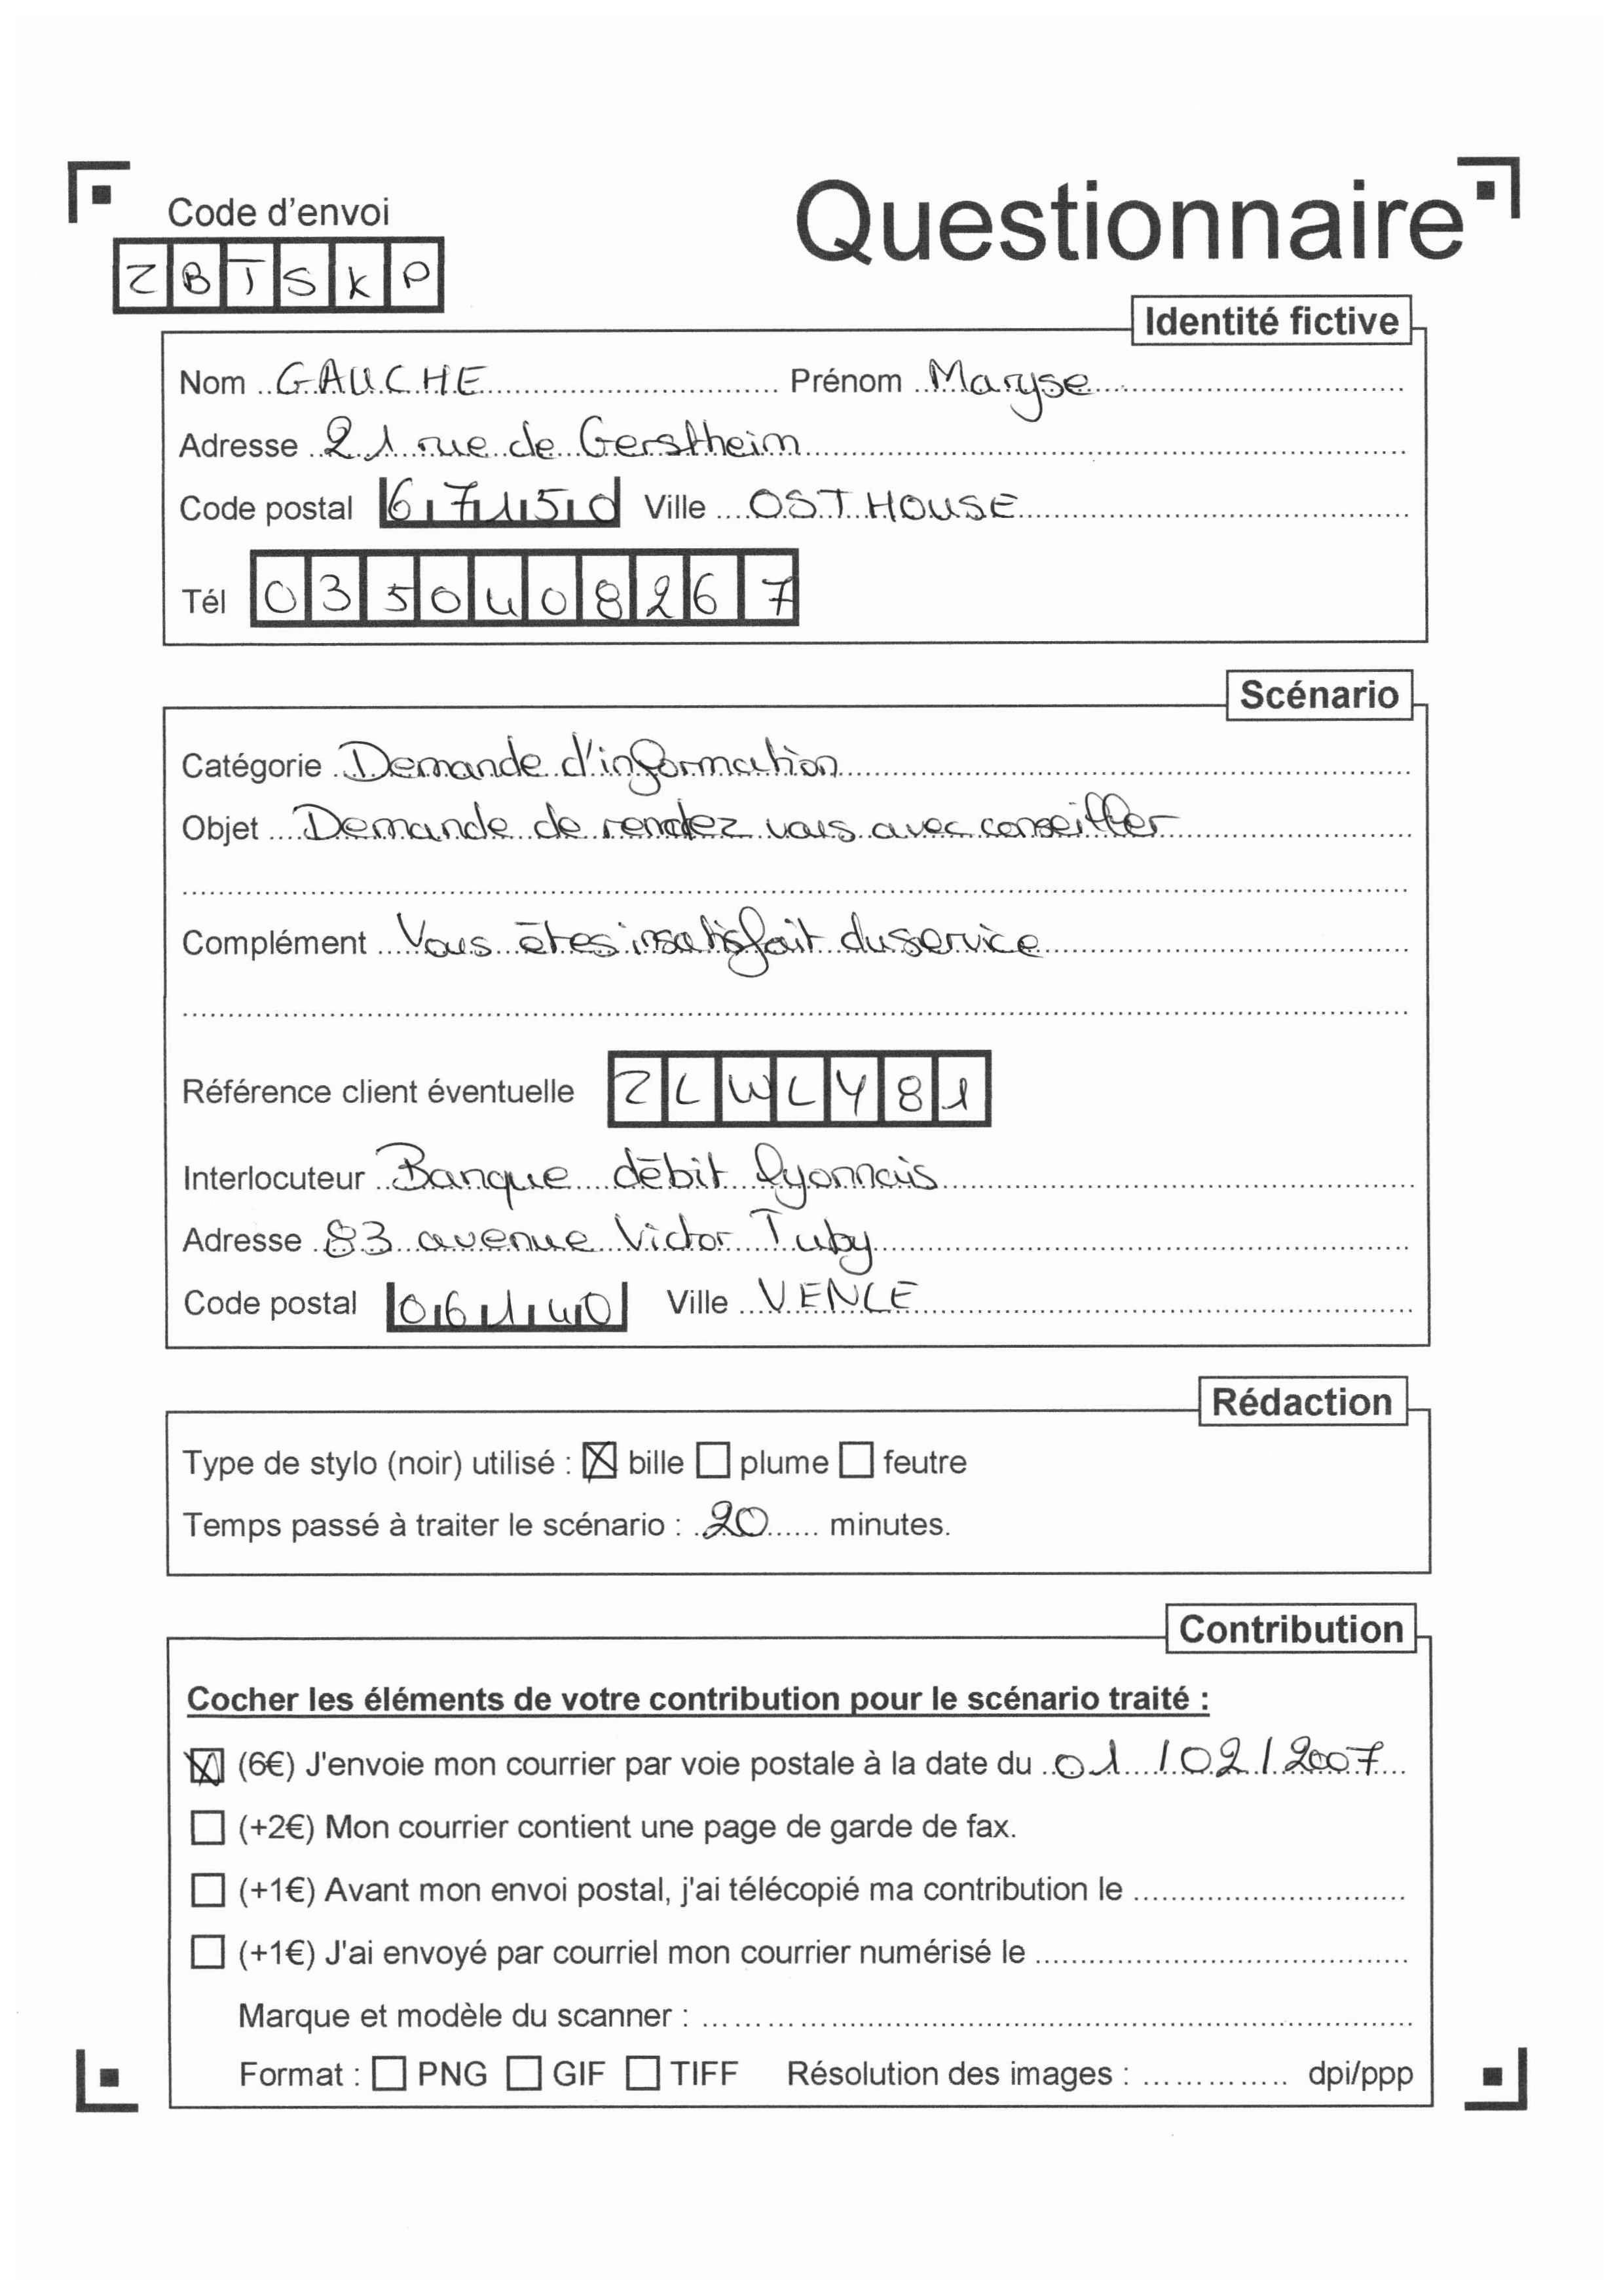 Questionnaire
Code d'envoi
ZBTSKP
Identité fictive
Nom GAUCHE Prénom Maryse
Adresse 21 rue de Gerstheim
Code postal 67150 Ville OSTHOUSE
Tél 0350408267
Scénario
Catégorie Demande d'information
Objet Demande de rendez vous avec conseiller
Complément Vous êtes insatisfait du service
Référence client éventuelle ZLWLY81
Interlocuteur Banque débit lyonnais
Adresse 83 avenue Victor Tuby
Code postal 06140 Ville VENCE
Rédaction
Type de stylo (noir) utilisé : ☒ bille ☐ plume ☐ feutre
Temps passé à traiter le scénario : 20 minutes.
Contribution
Cocher les éléments de votre contribution pour le scénario traité :
☒ (6€) J'envoie mon courrier par voie postale à la date du 01/02/2007
☐ (+2€) Mon courrier contient une page de garde de fax.
☐ (+1€) Avant mon envoi postal, j'ai télécopié ma contribution le
☐ (+1€) J'ai envoyé par courriel mon courrier numérisé le
Marque et modèle du scanner :
Format : ☐ PNG ☐ GIF ☐ TIFF Résolution des images : dpi/ppp